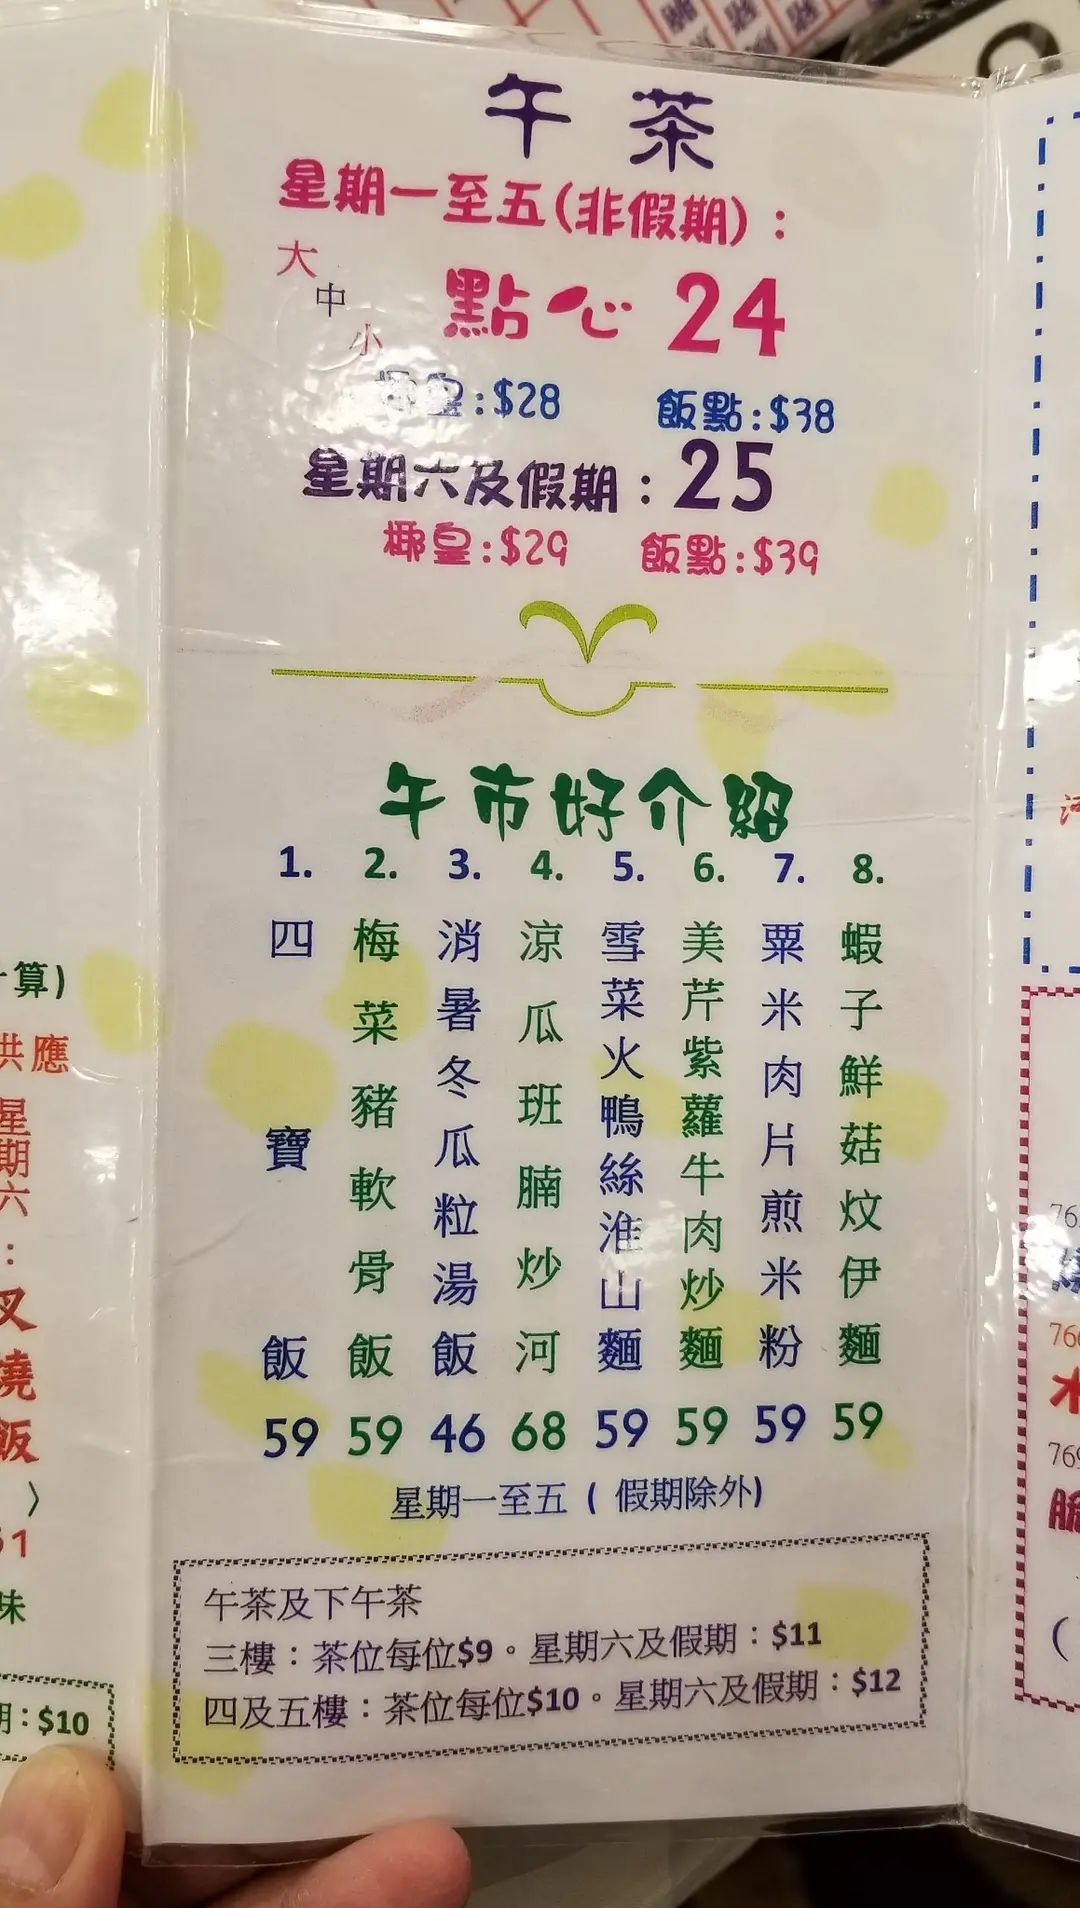 午茶
星期一至五(非假期)：
大
中
小
點心 24
椰皇:$28 飯點:$38
星期六及假期：25
椰皇:$29 飯點:$39
午市好介紹
1. 四寶飯 59
2. 梅菜豬軟骨飯 59
3. 消暑冬瓜粒湯飯 46
4. 涼瓜班腩炒河 68
5. 雪菜火鴨絲淮山麵 59
6. 美芹紫蘿牛肉炒麵 59
7. 粟米肉片煎米粉 59
8. 蝦子鮮菇炆伊麵 59
星期一至五 ( 假期除外)
午茶及下午茶
三樓：茶位每位$9。星期六及假期：$11
四及五樓：茶位每位$10。星期六及假期：$12
算)
供應
星期六：
叉燒飯
〉
味
期：$10